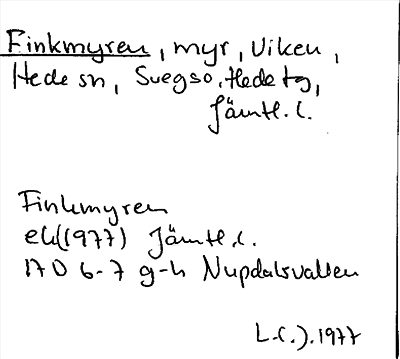 Finkmyren, myr, Viken,
Hede sn, Svegs o. Hede tg,
Jämtl. l.
Finkmyren
ek(1977) Jämtl. l.
17D 6-7 g-h Nupdalsvallen
L.C.J. 1977